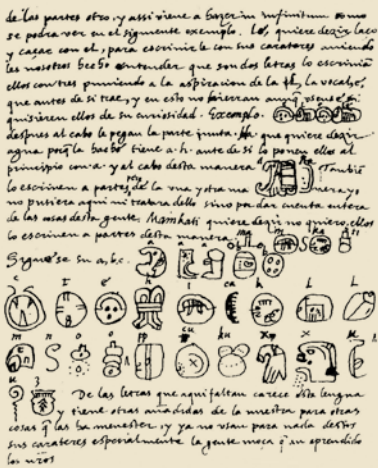 de las partes otro, y assi viene a hazer in infinitum como
se podra ver en el siguiente exemplo. Lé, quiere dezir laço
y caçar con el, para escrivirle con sus carateres aviendo
les nosotros hecho entender que son dos letras lo escrivian
ellos con tres puniendo a la aspiracion de la l, la vocal é,
que antes de si trae, y en esto no hierran aunq̃ usense, si
quisieren ellos de su curiosidad. Exemplo.
despues al cabo le pegan la parte junta. Ha que quiere dezir
agua porq̃ la hache tiene a. h. ante de si lo ponen ellos al
principio con a. y al cabo desta manera a ha Tambiẽ
lo escriven a partes de la una y otra ma nera, yo
no pusiera aqui ni tratara dello sino por dar cuenta entera
de las cosas desta gente. Mainkati quiere dezir no quiero, ellos
lo escriven a partes desta manera ma i n ka ti
Siguese su a, b, c. a a a b b
c t e h i ca k l l
m n o o p cu ku x x u
u z De las letras que aqui faltan carece esta lengua
y tiene otras añadidas de la nuestra para otras
cosas q̃ las ha menester, y ya no usan para nada destos
sus carateres especialmente la gente moça q̃ an aprendido
los nros